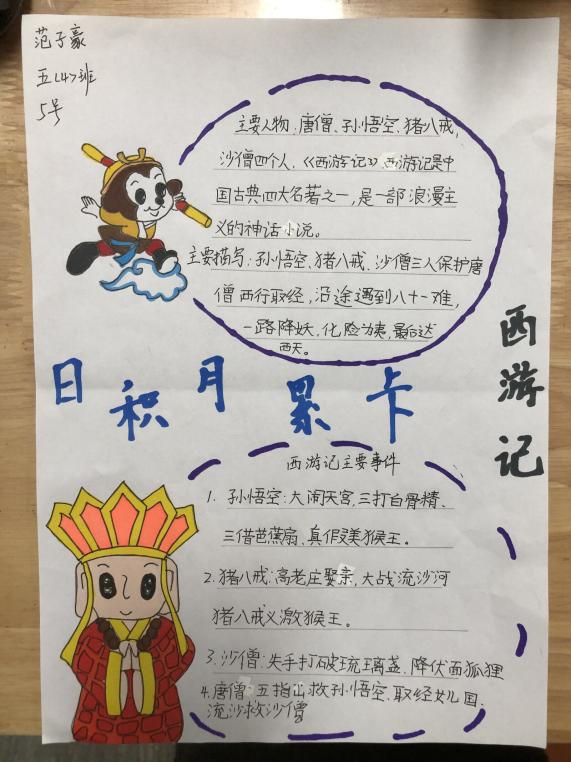 范子豪
五（4）班
5号
主要人物：唐僧、孙悟空、猪八戒，
沙僧四个人、《西游记》西游记是中
国古典四大名著之一，是一部浪漫主
义的神话小说。
主要描写：孙悟空、猪八戒、沙僧三人保护唐
僧西行取经，沿途遇到八十一难，
一路降妖，化险为夷，最后达
西天。
日积月累卡
西游记
西游记主要事件
1. 孙悟空：大闹天宫，三打白骨精、
三借芭蕉扇、真假美猴王。
2. 猪八戒：高老庄娶亲，大战流沙河
猪八戒义激猴王。
3. 沙僧：失手打破琉璃盏、降伏面狐狸
4. 唐僧：五指山救孙悟空、取经女儿国、
流沙救沙僧